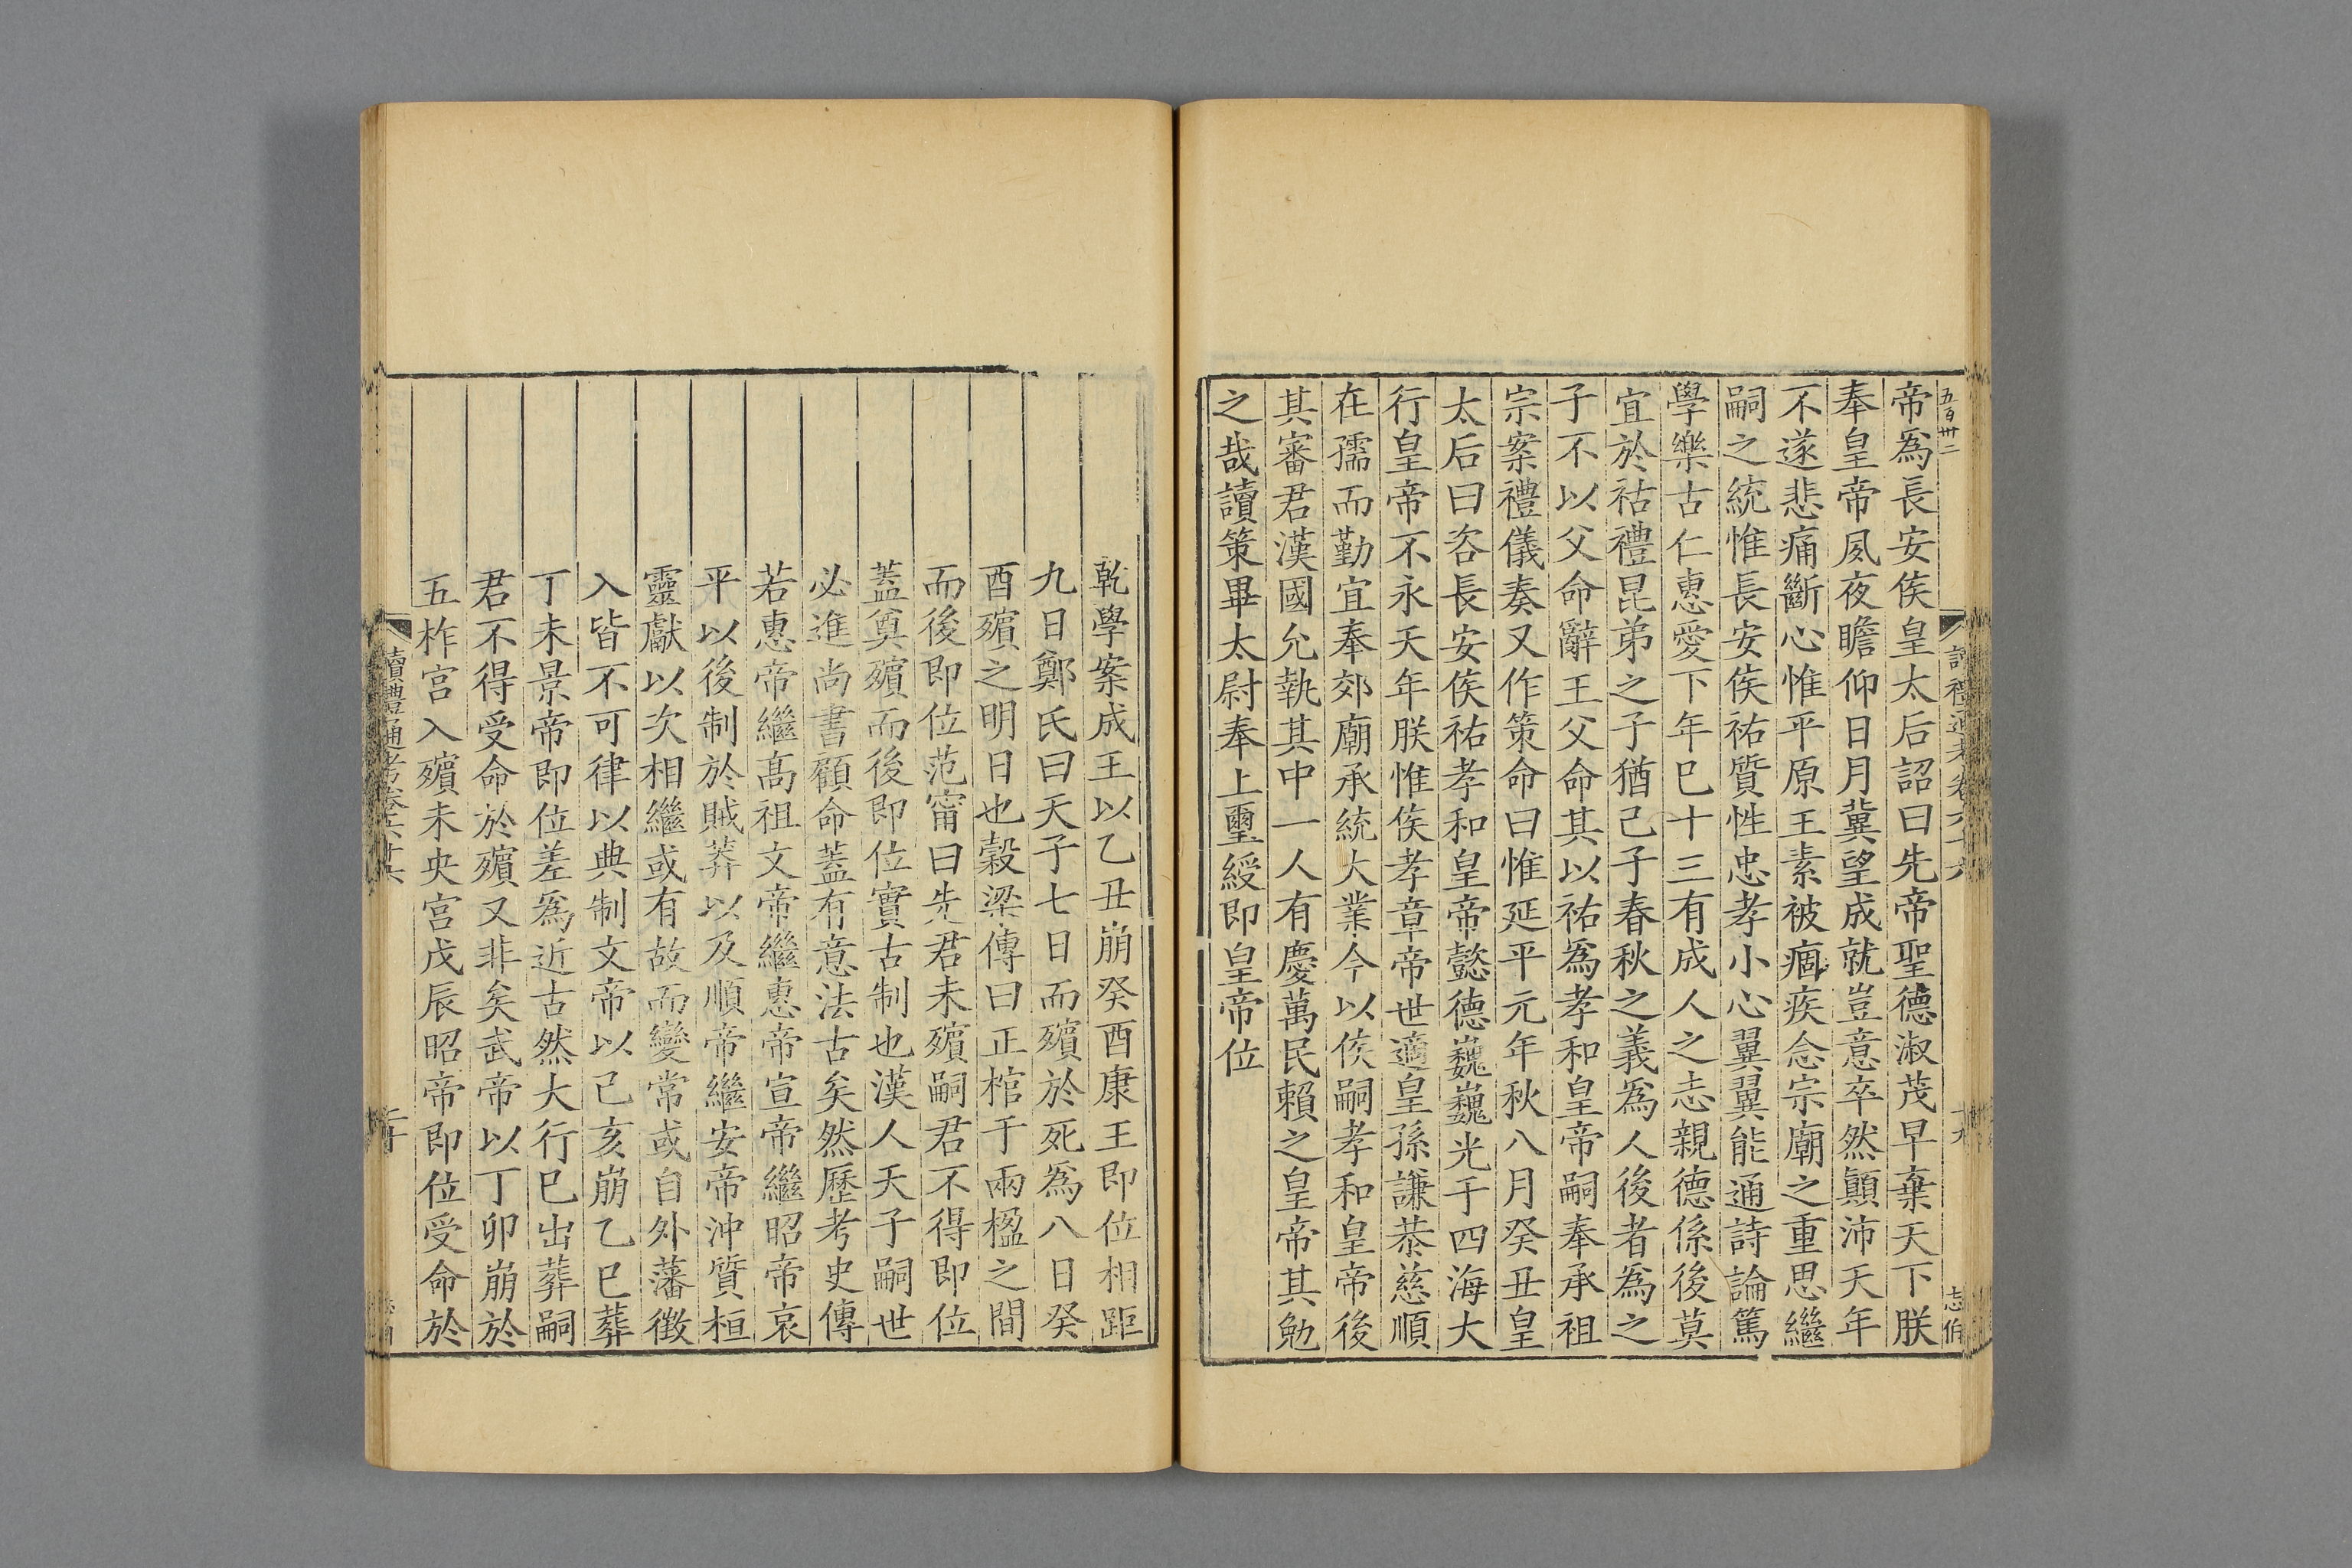 五百卅二
帝爲長安侯皇太后詔曰先帝聖德淑茂早棄天下朕
奉皇帝夙夜瞻仰日月冀望成就豈意卒然顚沛天年
不遂悲痛斷心惟平原王素被痼疾念宗廟之重思繼
嗣之統惟長安侯祐質性忠孝小心翼翼能通詩論篤
學樂古仁惠愛下年巳十三有成人之志親德係後莫
宜於祜禮昆弟之子猶己子春秋之義爲人後者爲之
子不以父命辭王父命其以祐爲孝和皇帝嗣奉承祖
宗案禮儀奏又作策命曰惟延平元年秋八月癸丑皇
太后曰咨長安侯祐孝和皇帝懿德巍巍光于四海大
行皇帝不永天年朕惟侯孝章帝世適皇孫謙恭慈順
在孺而勤宜奉郊廟承統大業今以侯嗣孝和皇帝後
其審君漢國允執其中一人有慶萬民賴之皇帝其勉
之哉讀策畢太尉奉上璽綬即皇帝位
乾學案成王以乙丑崩癸酉康王即位相距
九日鄭氏曰天子七日而殯於死爲八日癸
酉殯之明日也穀梁傳曰正棺于兩楹之間
而後即位范甯曰先君未殯嗣君不得即位
蓋奠殯而後即位實古制也漢人天子嗣世
必進尚書顧命蓋有意法古矣然歷考史傳
若惠帝繼髙祖文帝繼惠帝宣帝繼昭帝哀
平以後制於賊莽以及順帝繼安帝沖質桓
靈獻以次相繼或有故而變常或自外藩徴
入皆不可律以典制文帝以己亥崩乙巳葬
丁未景帝即位差爲近古然大行巳出葬嗣
君不得受命於殯又非矣武帝以丁卯崩於
五柞宮入殯未央宮戊辰昭帝即位受命於
讀禮通考卷六十六
二十